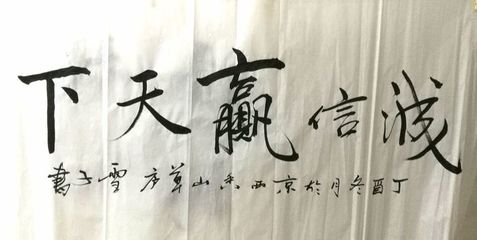 诚信赢天下
丁酉冬月於京西香山草 雪子書